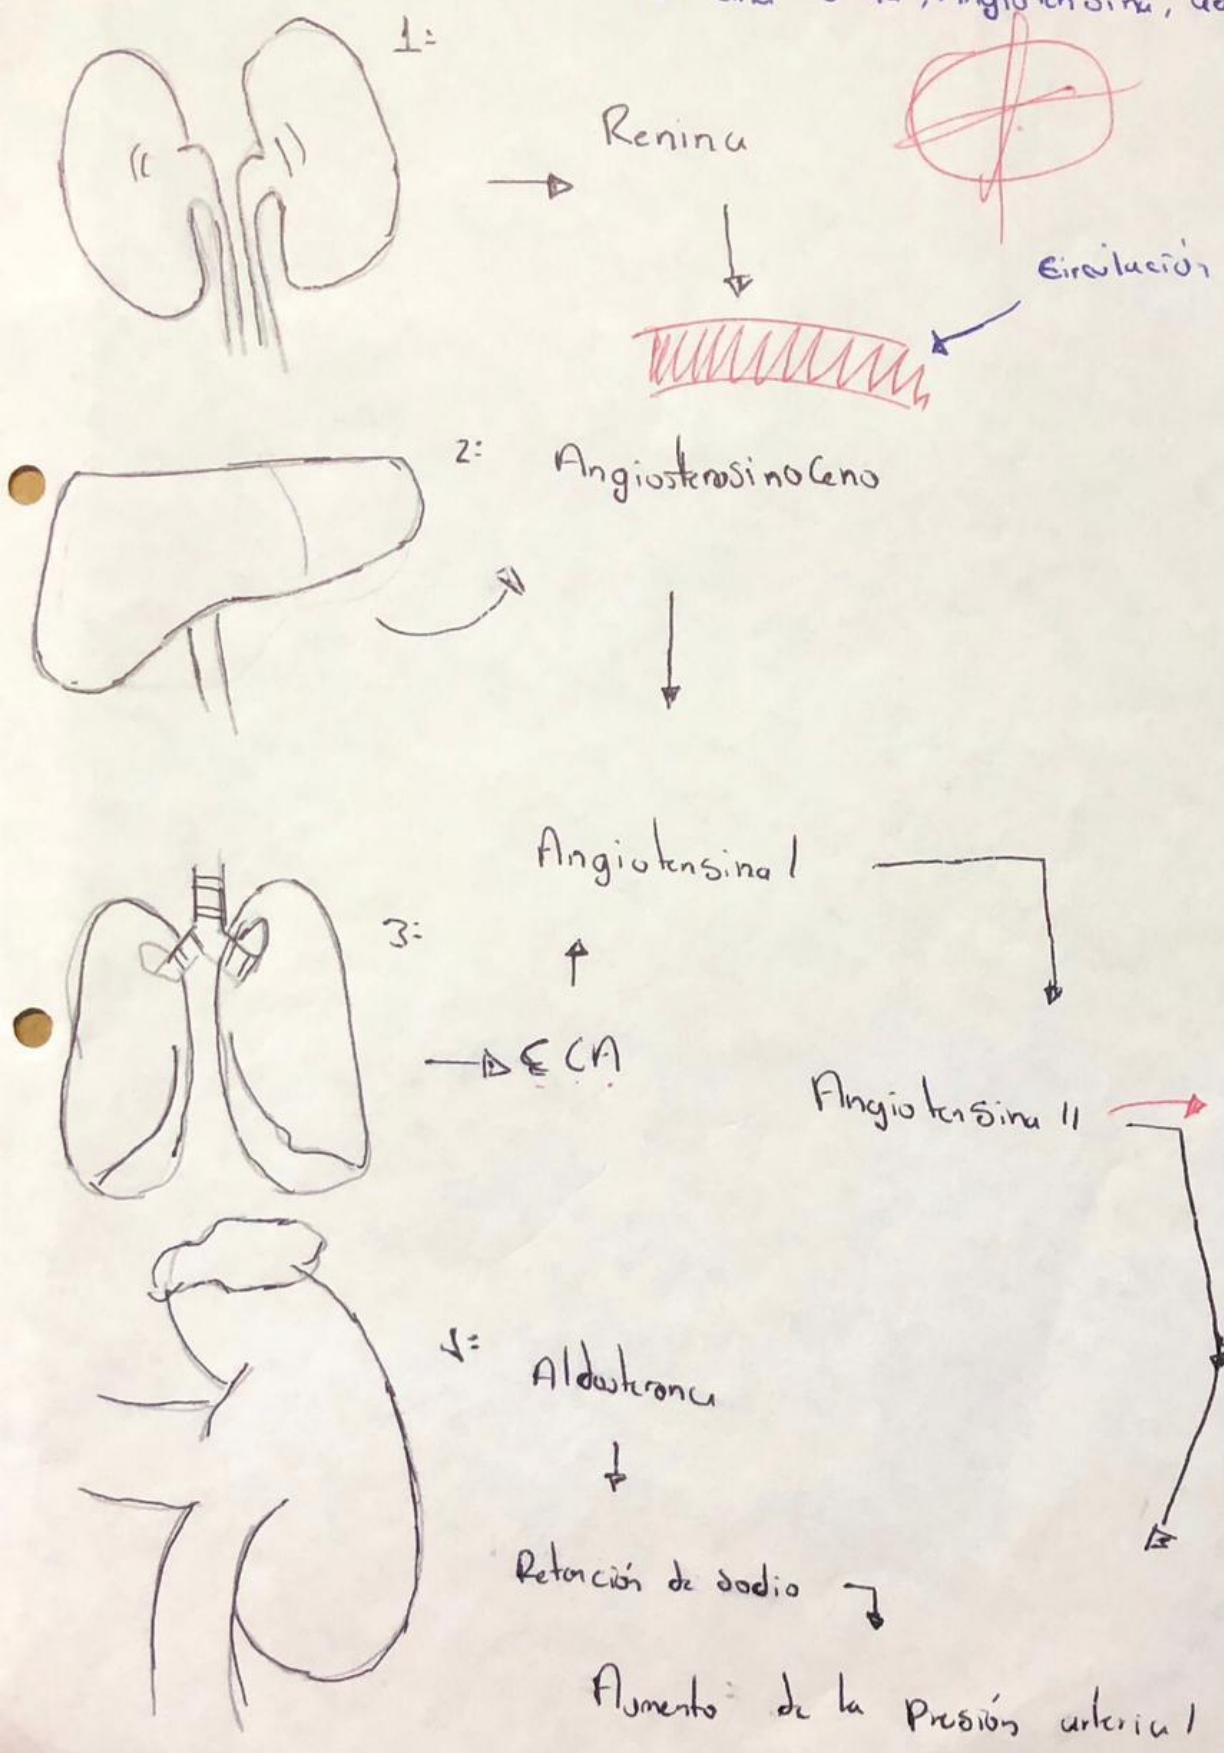 , Angiotensina,
1:
Renina
Circulación
2: Angiostenosinoceno
Angiotensina I
3:
ECA
Angiotensina II
Aldosterona
Retención de sodio
Aumento de la Presión arterial